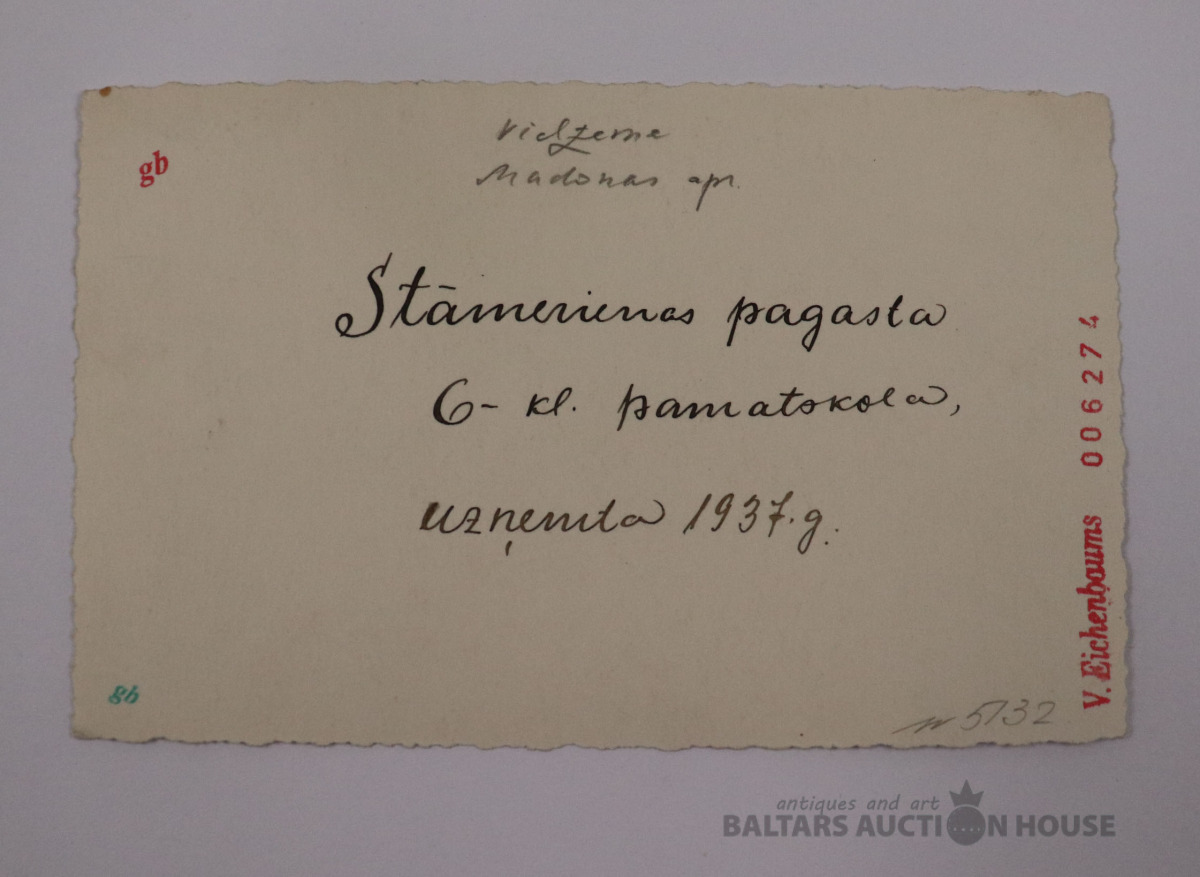 Vidzeme
Madonas apr.
gb
Stāmerienas pagasta
6- kl. pamatskola,
uzņemta 1937.g.
V. Eichenbaums 006274
gb
№ 5132
antiques and art
BALTARS AUCTION HOUSE